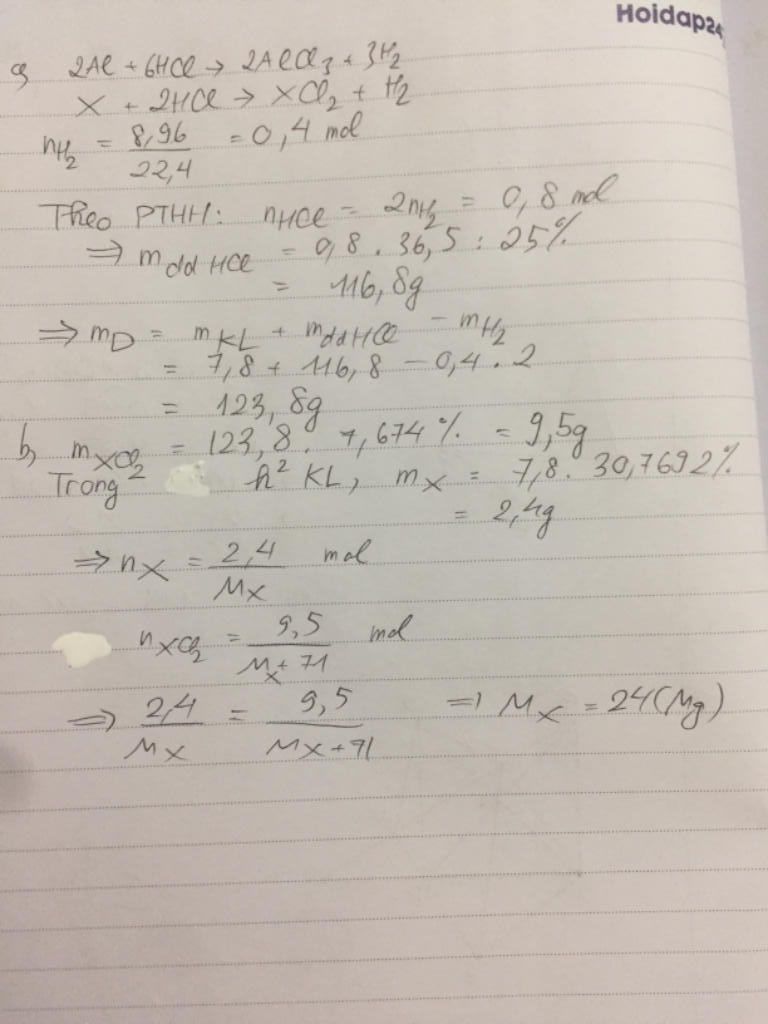 Hoidap24
a, 2Al + 6HCl → 2AlCl₃ + 3H₂
X + 2HCl → XCl₂ + H₂
nH₂ = 8,96 / 22,4 = 0,4 mol
Theo PTHH: nHCl = 2nH₂ = 0,8 mol
⇒ mdd HCl = 0,8 . 36,5 : 25%
= 116,8g
⇒ mD = mKL + mddHCl - mH₂
= 7,8 + 116,8 - 0,4 . 2
= 123,8g
b, mXCl₂ = 123,8 . 7,674% = 9,5g
Trong h² KL, mX = 7,8 . 30,7692%
= 2,4g
⇒ nX = 2,4 / MX mol
nXCl₂ = 9,5 / MX + 71 mol
⇒ 2,4 / MX = 9,5 / MX + 71 ⇒ MX = 24 (Mg)